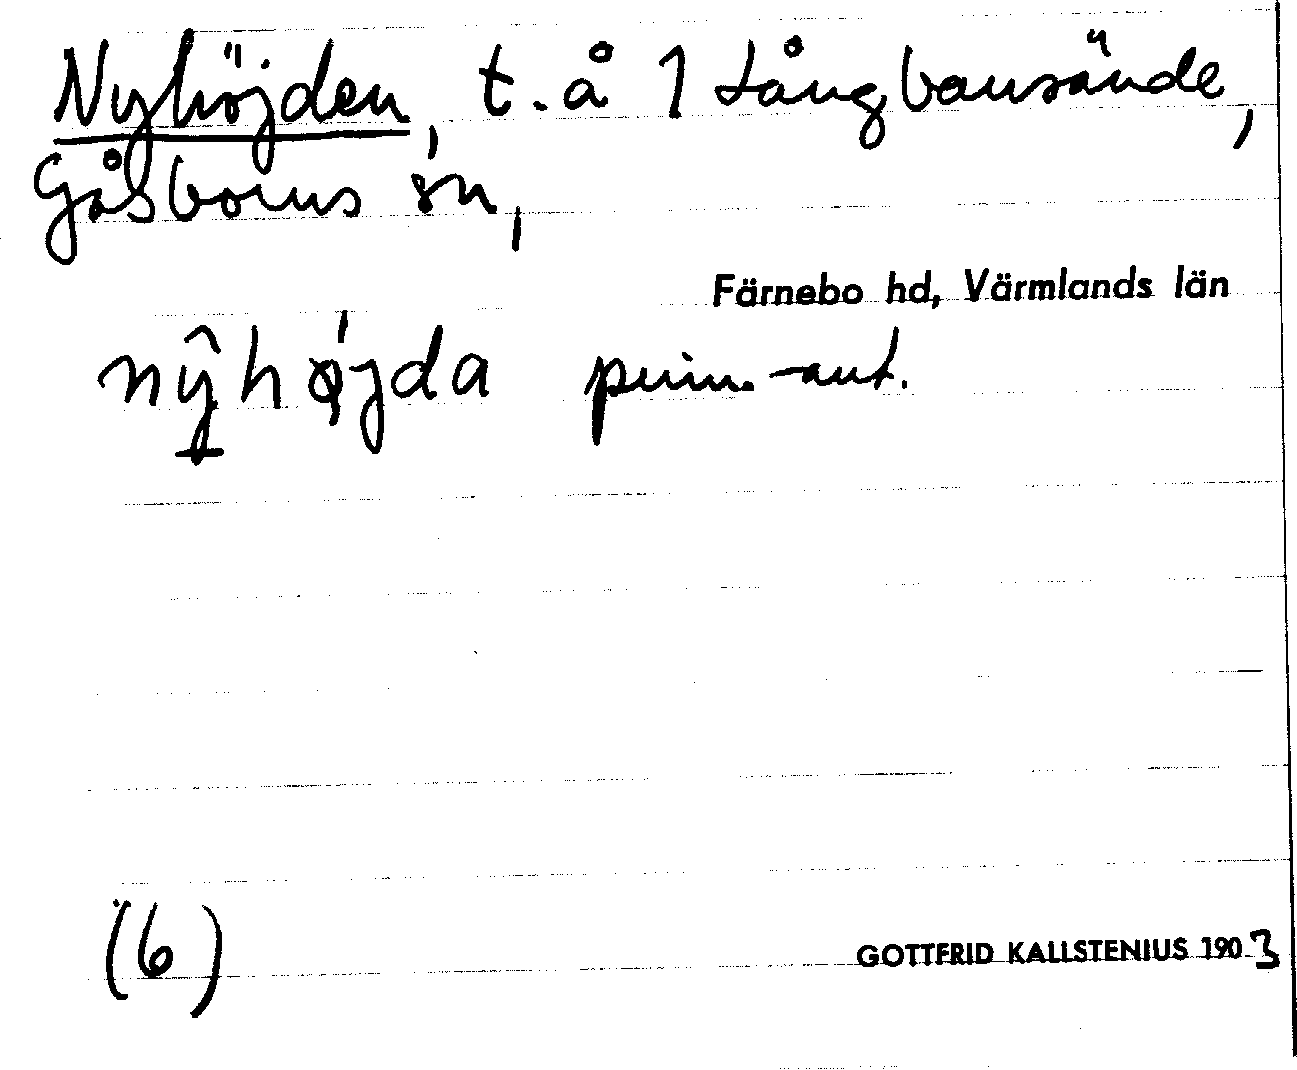 Nyhöjden, t. å 1 Långbansände,
Gåsborns sn,
Färnebo hd, Värmlands län
nŷhǿjda prim.-ant.
(6)
GOTTFRID KALLSTENIUS 1903